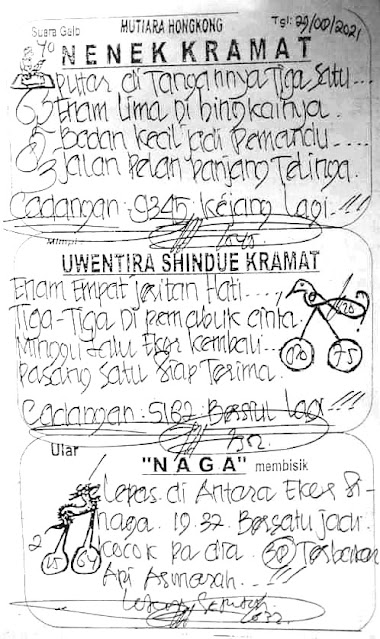 Suara Gaib MUTIARA HONGKONG Tgl: 29/08/2021
40
NENEK KRAMAT
Putar di Tangannya Tiga Satu....
63 Enam Lima Di bingkainya.
5 Badan Kecil jadi Pemandu....
3 Jalan Pelan Panjang Telinga.
Cadangan: 9345 Kejang Lagi !!!
Mimpi
UWENTIRA SHINDUE KRAMAT
Enam Empat Jeritan Hati....
Tiga-Tiga Di pemabuk cinta
Minggu Lalu Ekor Kembali...
75
Pasang Satu Siap Terima.
Cadangan: 5182 Lagi !!!
Ular
"NAGA" membisik
Lepas di Antara Ekor Si-
naga. 19.32. Bersatu jadi
2
Cocok pa dia. Terbakar
Api Asmarah...!!!